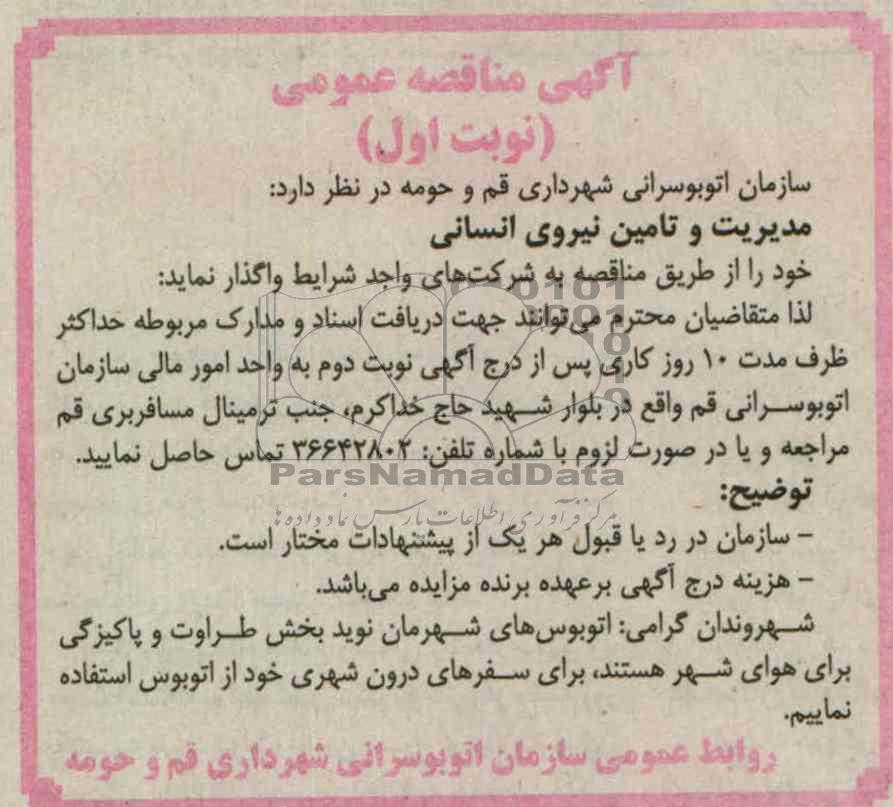 آگهی مناقصه عمومی
(نوبت اول)
سازمان اتوبوسرانی شهرداری قم و حومه در نظر دارد:
مدیریت و تامین نیروی انسانی
خود را از طریق مناقصه به شرکت‌های واجد شرایط واگذار نماید:
لذا متقاضیان محترم می‌توانند جهت دریافت اسناد و مدارک مربوطه حداکثر
ظرف مدت ۱۰ روز کاری پس از درج آگهی نوبت دوم به واحد امور مالی سازمان
اتوبوسرانی قم واقع در بلوار شهید حاج خداکرم، جنب ترمینال مسافربری قم
مراجعه و یا در صورت لزوم با شماره تلفن: ۳۶۶۴۲۸۰۲ تماس حاصل نمایید.
ParsNamadData
توضیح:
مرکز فرآوری اطلاعات پارس نماد داده ها
– سازمان در رد یا قبول هر یک از پیشنهادات مختار است.
– هزینه درج آگهی برعهده برنده مزایده می‌باشد.
شهروندان گرامی: اتوبوس‌های شهرمان نوید بخش طراوت و پاکیزگی
برای هوای شهر هستند، برای سفرهای درون شهری خود از اتوبوس استفاده
نماییم.
روابط عمومی سازمان اتوبوسرانی شهرداری قم و حومه